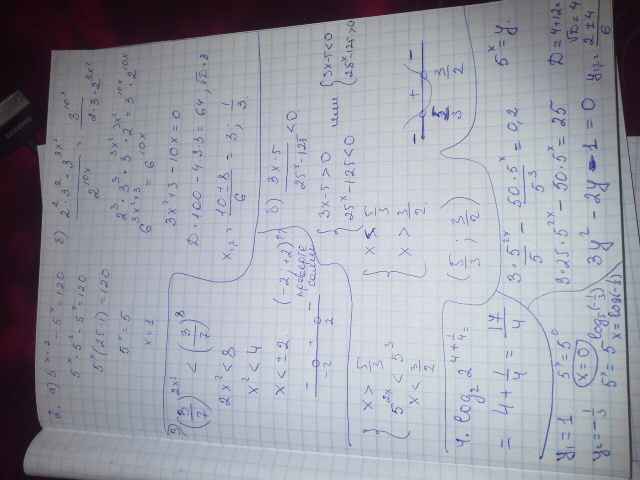 2. а) 5^(x+2) - 5^x = 120
5^x · 5^2 - 5^x = 120
5^x (25-1) = 120
5^x = 5
x = 1
б) 2^2 · 3^3 · 3^(3x^2)
2^(10x)
3^(10x)
2 · 3 · 2^(3x^2)
2^3 · 3^3 · 3^(3x^2) · 2^(3x^2) = 3^(10x) · 2^(10x)
6^(3x^2+3) = 6^(10x)
3x^2 + 3 - 10x = 0
D = 100 - 4·3·3 = 64, √D = 8
x1,2 = (10 ± 8)/6 = 3; 1/3.
3) (3/7)^(2x^2) < (3/7)^8
2x^2 < 8
x^2 < 4
x < ±2. (-2; +2)
- + -
-2 2
б) (3x-5)/(25^x-125) < 0.
{ 3x-5 > 0
25^x - 125 < 0
или { 3x-5 < 0
25^x - 125 > 0
{ x > 5/3
5^(2x) < 5^3
x < 3/2
{ x < 5/3
x > 3/2.
- + -
5/3 3/2
(5/3; 3/2)
4. log_2 2^(4+1/4) =
= 4 + 1/4 = 17/4
3·5^(2x)/5 - 50·5^x/5^3 = 0,2
5^x = y.
3·25·5^(2x) - 50·5^x = 25
3y^2 - 2y - 1 = 0
D = 4+12=
√D = 4
y1,2 = (2±4)/6
y1 = 1 5^x = 5^0
x = 0
y2 = -1/3 5^x = 5^(log_5(-1/3))
x = log(-1/3)